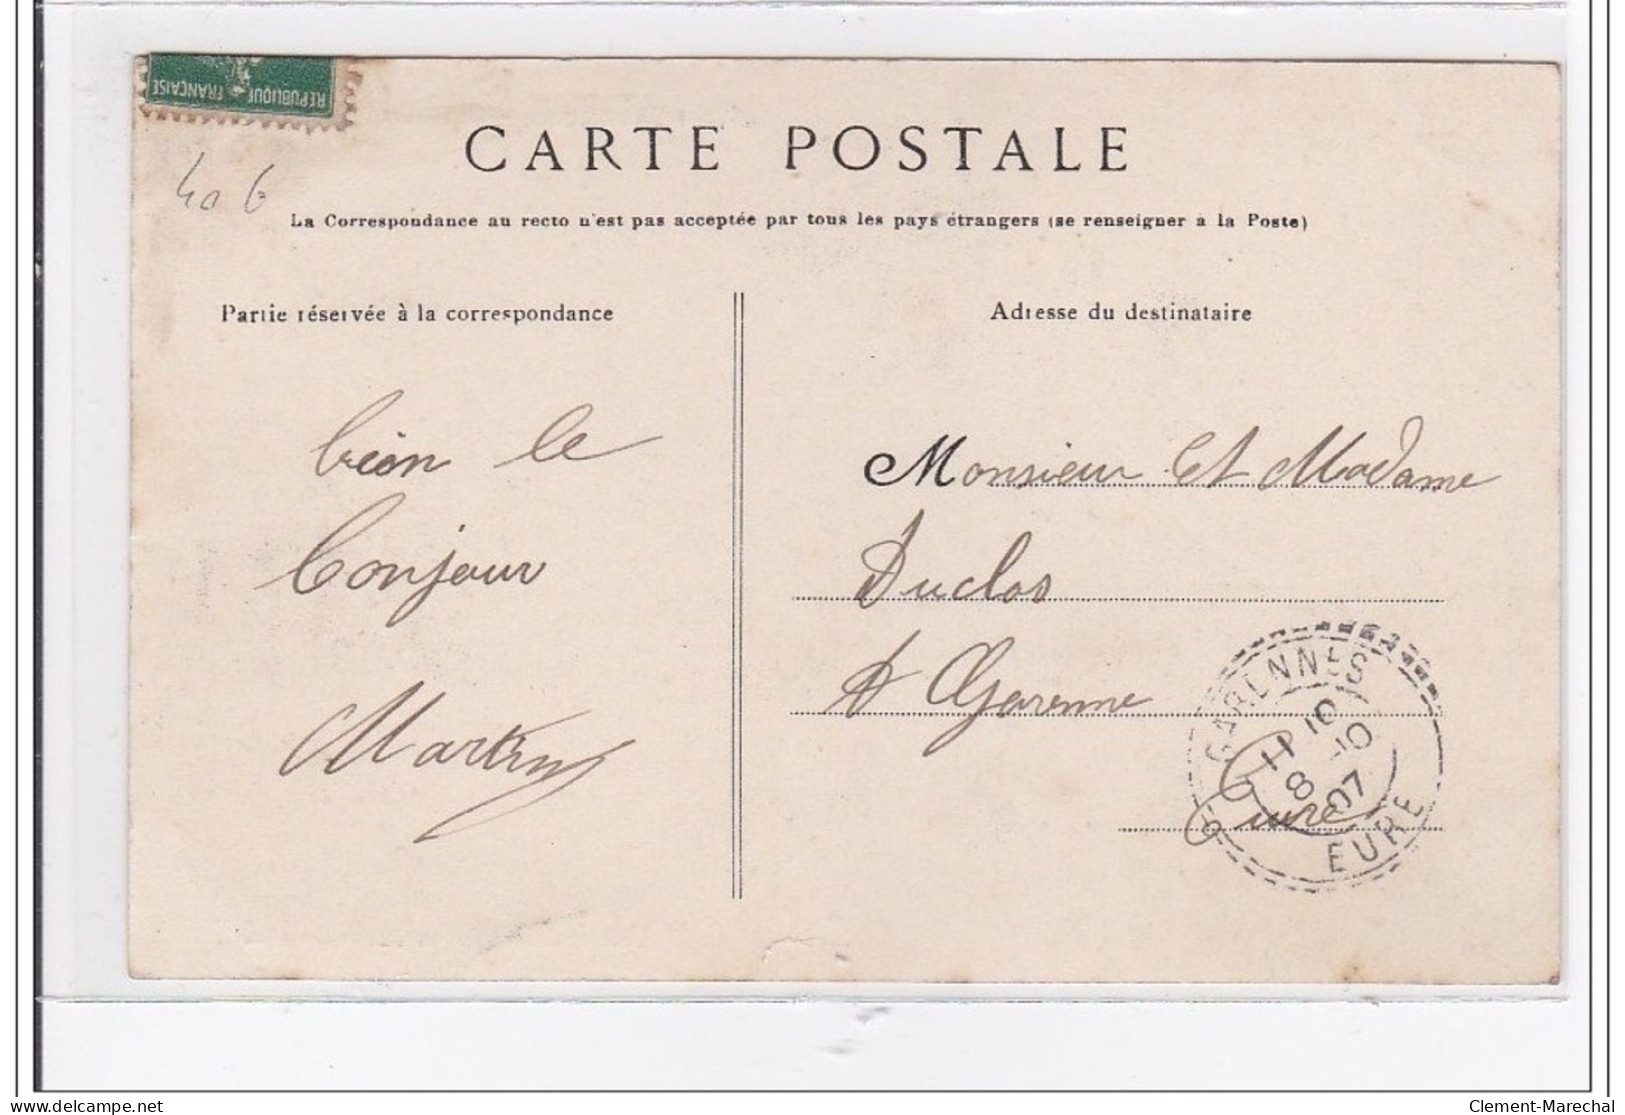 RÉPUBLIQUE FRANÇAISE
40 6
CARTE POSTALE
La Correspondance au recto n'est pas acceptée par tous les pays étrangers (se renseigner à la Poste)
Partie réservée à la correspondance
bien le
bonjour
Martin
Adresse du destinataire
Monsieur et Madame
Duclos
A Garenne
Eure
GARENNES
11 10
8 -10
07
EURE
delcampe.net
Clement-Marechal